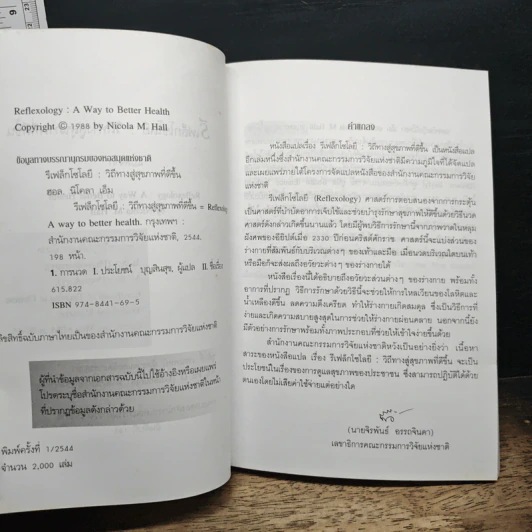 Reflexology : A Way to Better Health
Copyright © 1988 by Nicola M. Hall
ข้อมูลทางบรรณานุกรมของหอสมุดแห่งชาติ
รีเฟล็กโซโลยี : วิถีทางสู่สุขภาพที่ดีขึ้น
ฮอล, นิโคลา เอ็ม
รีเฟล็กโซโลยี : วิถีทางสู่สุขภาพที่ดีขึ้น = Reflexology
A way to better health. กรุงเทพฯ :
สำนักงานคณะกรรมการวิจัยแห่งชาติ, 2544.
198 หน้า.
1. การนวด I. ประโยชน์ บุญสินสุข, ผู้แปล II. ชื่อเรื่อง
615.822
ISBN 974-8441-69-5
ลิขสิทธิ์ฉบับภาษาไทยเป็นของสำนักงานคณะกรรมการวิจัยแห่งชาติ
ผู้ที่นำข้อมูลจากเอกสารฉบับนี้ไปใช้อ้างอิงหรือเผยแพร่
โปรดระบุชื่อสำนักงานคณะกรรมการวิจัยแห่งชาติในหน้า
ที่ปรากฏข้อมูลดังกล่าวด้วย
พิมพ์ครั้งที่ 1/2544
จำนวน 2,000 เล่ม
คำแถลง
หนังสือแปลเรื่อง รีเฟล็กโซโลยี : วิถีทางสู่สุขภาพที่ดีขึ้น เป็นหนังสือแปล
อีกเล่มหนึ่งซึ่งสำนักงานคณะกรรมการวิจัยแห่งชาติมีความภูมิใจที่ได้จัดแปล
และเผยแพร่ภายใต้โครงการจัดแปลหนังสือของสำนักงานคณะกรรมการวิจัย
แห่งชาติ
รีเฟล็กโซโลยี (Reflexology) ศาสตร์การตอบสนองจากการกระตุ้น
เป็นศาสตร์ที่บำบัดอาการเจ็บไข้และช่วยบำรุงรักษาสุขภาพให้ดีขึ้นด้วยวิธีนวด
ศาสตร์ดังกล่าวเกิดขึ้นนานแล้ว โดยมีผู้พบวิธีการรักษานี้จากภาพวาดในหลุม
ฝังศพของอียิปต์เมื่อ 2330 ปีก่อนคริสต์ศักราช ศาสตร์นี้จะแบ่งส่วนของ
ร่างกายที่สัมพันธ์กับบริเวณต่างๆ ของเท้าและมือ เมื่อนวดบริเวณใดบนเท้า
หรือมือก็จะส่งผลถึงอวัยวะต่างๆ ของร่างกายได้
หนังสือเรื่องนี้ได้อธิบายถึงอวัยวะส่วนต่างๆ ของร่างกาย พร้อมทั้ง
อาการที่ปรากฏ วิธีการรักษาด้วยวิธีนี้จะช่วยให้การไหลเวียนของโลหิตและ
น้ำเหลืองดีขึ้น ลดความตึงเครียด ทำให้ร่างกายเกิดสมดุล ซึ่งเป็นวิธีการที่
ง่ายและเกิดความสบายสูงสุดในการช่วยให้ร่างกายผ่อนคลาย นอกจากนี้ยัง
มีตัวอย่างการรักษาพร้อมทั้งภาพประกอบที่ช่วยให้เข้าใจง่ายขึ้นด้วย
สำนักงานคณะกรรมการวิจัยแห่งชาติหวังเป็นอย่างยิ่งว่า เนื้อหา
สาระของหนังสือแปล เรื่อง รีเฟล็กโซโลยี : วิถีทางสู่สุขภาพที่ดีขึ้น จะเป็น
ประโยชน์ในเรื่องของการดูแลสุขภาพของประชาชน ซึ่งสามารถปฏิบัติได้ด้วย
ตนเองโดยไม่เสียค่าใช้จ่ายแต่อย่างใด
(นายจิรพันธ์ อรรถจินดา)
เลขาธิการคณะกรรมการวิจัยแห่งชาติ